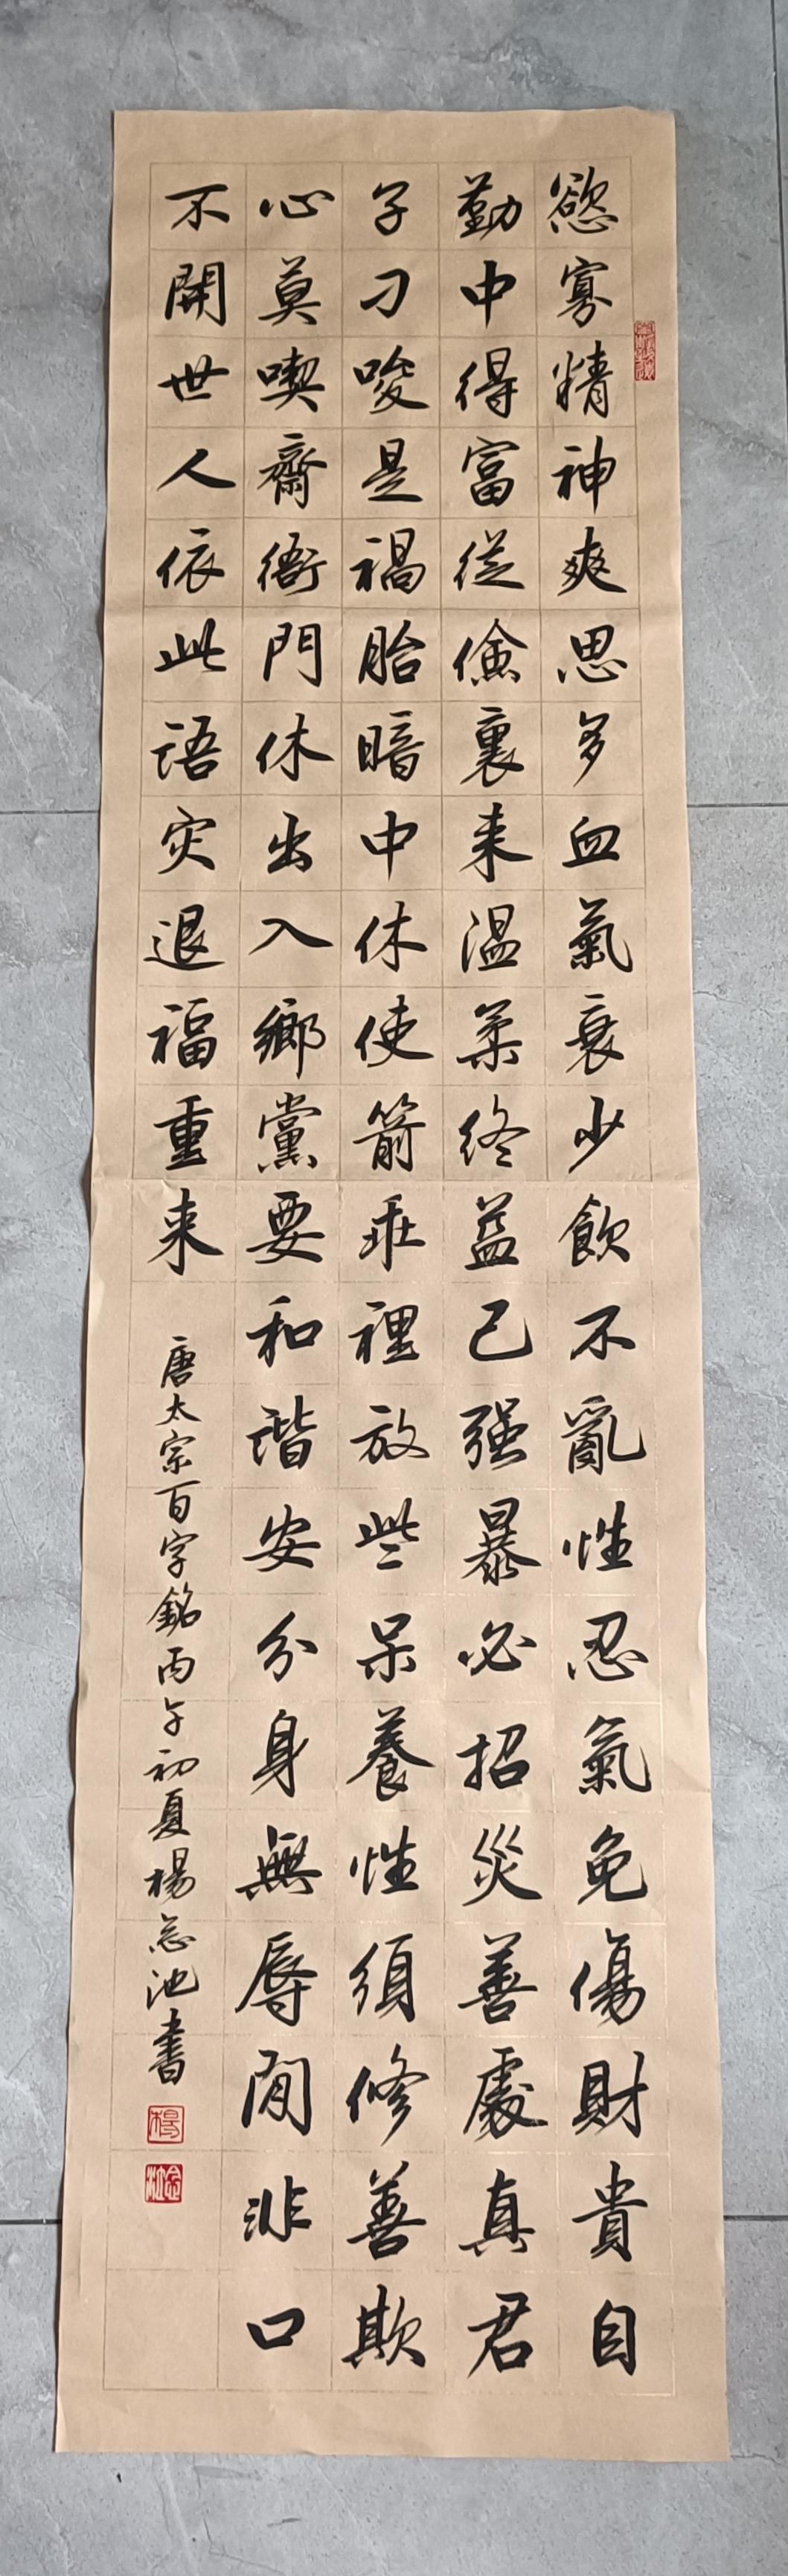 慾寡精神爽思多血氣衰少飲不亂性忍氣免傷財貴自
勤中得富從儉裏来溫柔終益己强暴必招災善處真君
子刁唆是禍胎暗中休使箭乖裡放些呆養性須修善欺
心莫喫齋衙門休出入鄉黨要和諧安分身無辱閒非口
不開世人依此語灾退福重来
唐太宗百字銘丙午初夏楊念池書
楊